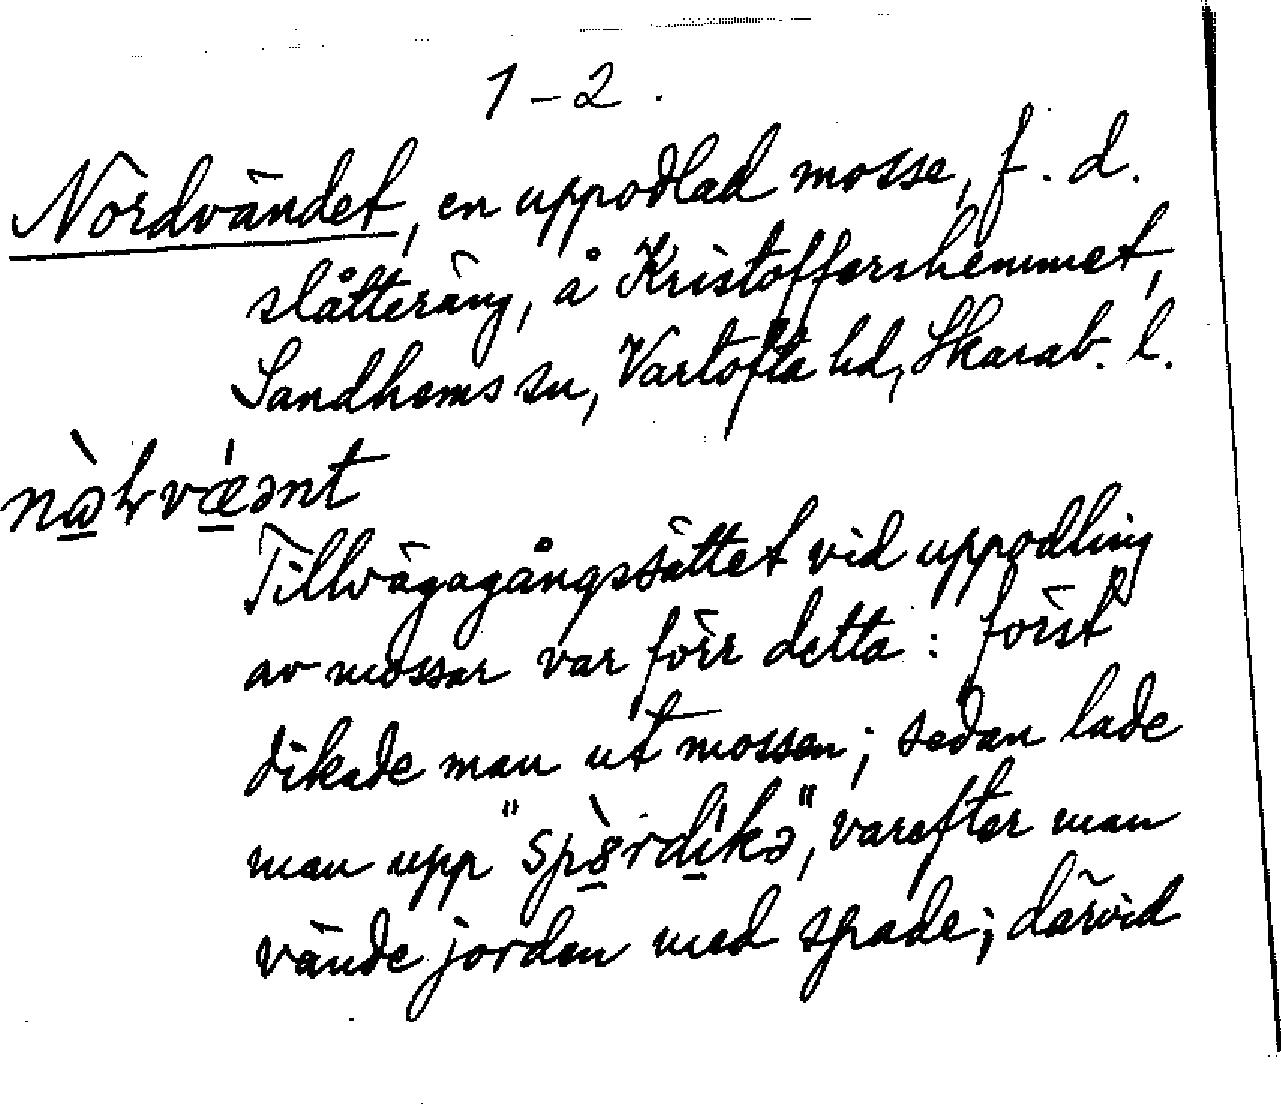 1-2.
Nordvändet, en uppodlad mosse, f.d.
slåtteräng, å Kristoffershemmet,
Sandhems sn, Vartofta hd, Skarab. l.
Tillvägagångssättet vid uppodling
av mossar var förr detta: först
dikade man ut mossen; sedan lade
man upp " ", varefter man
vände jorden med spade; därvid